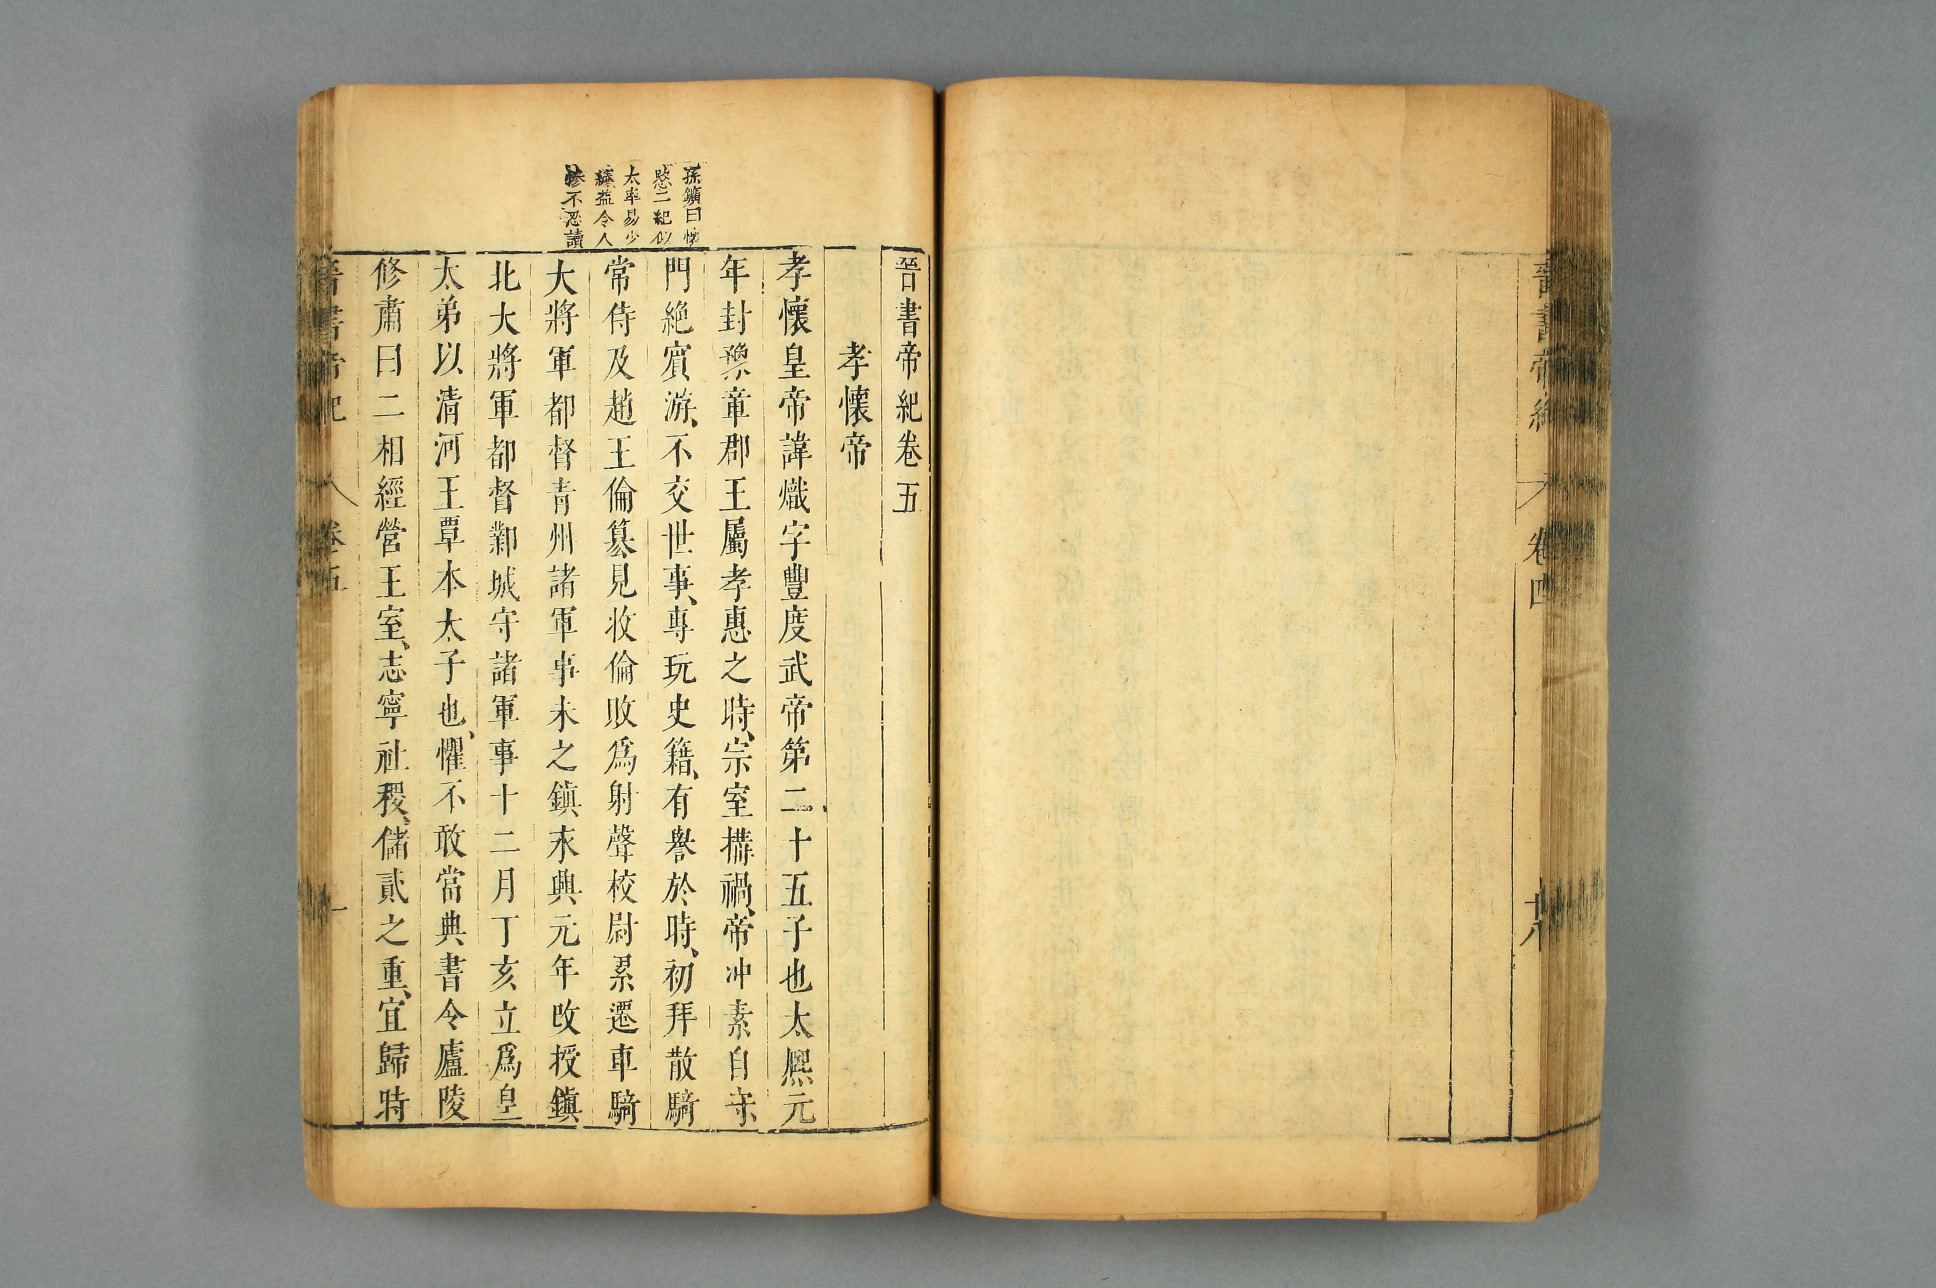 晉書帝紀
卷四
十八
晉書帝紀卷五
孝懷帝
孝懷皇帝諱熾字豐度武帝第二十五子也太熙元
年封豫章郡王屬孝惠之時、宗室搆禍、帝冲素自守、
門絶賓游、不交世事、專玩史籍、有譽於時、初拜散騎
常侍及趙王倫簒見收倫敗爲射聲校尉累遷車騎
大將軍都督青州諸軍事未之鎮永興元年改授鎮
北大將軍都督鄴城守諸軍事十二月丁亥立爲皇
太弟以清河王覃本太子也、懼不敢當典書令廬陵
修肅曰二相經營王室、志寧社稷、儲貳之重、宜歸時
孫鑛曰懷
愍二紀似
太率易少
縝益令人
慘不忍讀
晉書帝紀
卷五
一